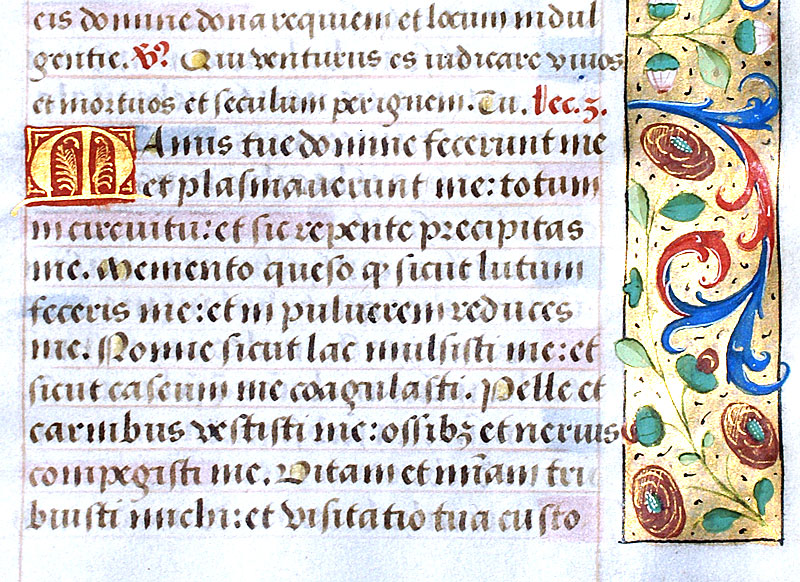 eis domine dona requiem et locum indul
gentie. V? Qui venturus es iudicare vivos
et mortuos et seculum per ignem. Tu. lec. 3.
Manus tue domine fecerunt me
et plasmaverunt me: totum
in circuitu: et sic repente precipitas
me. Memento queso qp sicut lutum
feceris me: et in pulverem reduces
me. Nonne sicut lac mulsisti me: et
sicut caseum me coagulasti. Pelle et
carnibus vestisti me: ossibꝫ et nervis
compegisti me. Vitam et mīam tri
buisti michi: et visitatio tua custo